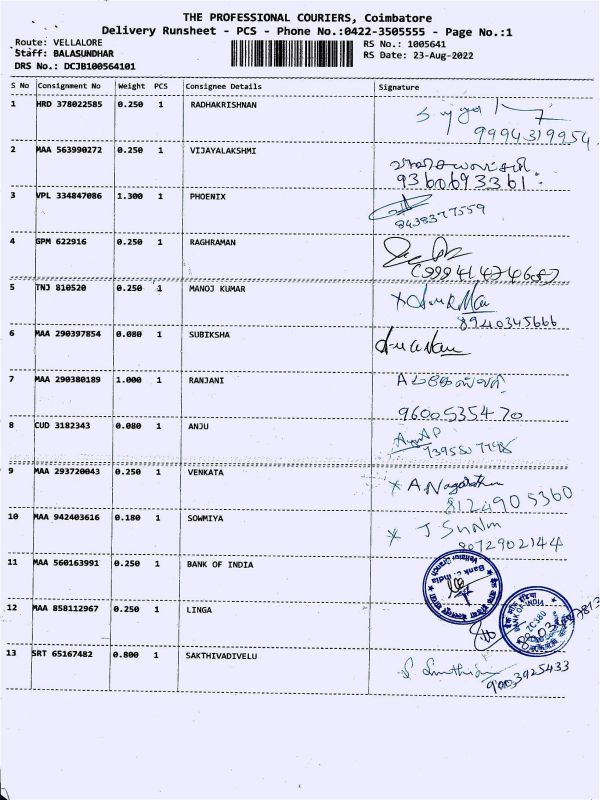 THE PROFESSIONAL COURIERS, Coimbatore
Delivery Runsheet - PCS - Phone No.:0422-3505555 - Page No.:1
Route: VELLALORE
Staff: BALASUNDHAR
DRS No.: DCJB100564101
RS No.: 1005641
RS Date: 23-Aug-2022
S No Consignment No Weight PCS Consignee Details Signature
1 HRD 378022585 0.250 1 RADHAKRISHNAN
9994319954
2 MAA 563990272 0.250 1 VIJAYALAKSHMI
9360693361
3 VPL 334847086 1.300 1 PHOENIX
8438377559
4 GPM 622916 0.250 1 RAGHRAMAN
5 TNJ 810520 0.250 1 MANOJ KUMAR
8940345666
6 MAA 290397854 0.080 1 SUBIKSHA
7 MAA 290380189 1.000 1 RANJANI
9600535470
8 CUD 3182343 0.080 1 ANJU
9 MAA 293720043 0.250 1 VENKATA
8124905360
10 MAA 942403616 0.180 1 SOWMIYA
8072902144
11 MAA 560163991 0.250 1 BANK OF INDIA
12 MAA 858112967 0.250 1 LINGA
13 SRT 65167482 0.800 1 SAKTHIVADIVELU
9003925433